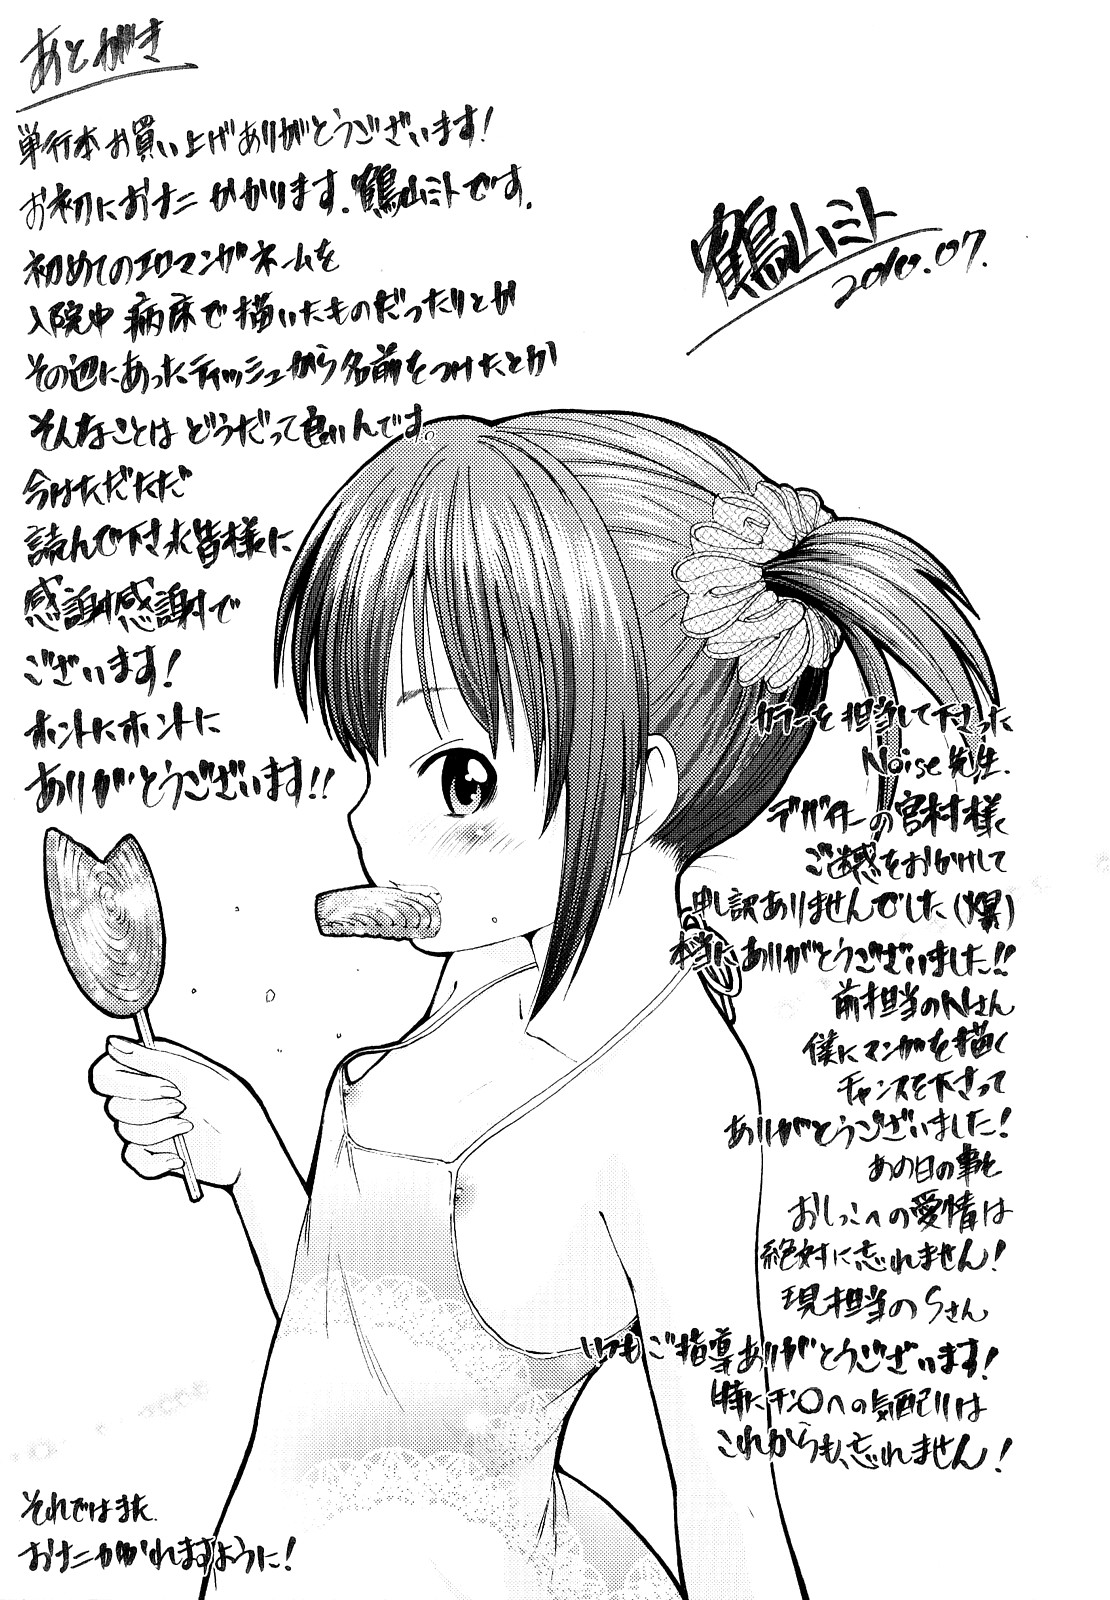 あとがき
単行本お買い上げありがとうございます!
お初におナニかかります、鶴山ミトです。
初めてのエロマンガネームを
入院中病床で描いたものだったりとか
その辺にあったティッシュから名前をつけたとか
そんなことはどうだって良いんです。
今はただただ
読んで下さる皆様に
感謝感謝で
ございます!
ホントにホントに
ありがとうございます!!
鶴山ミト
2010.07.
カラーを担当して下さった
Noise先生.
デザイナーの宮村様
ご迷惑をおかけして
申し訳ありませんでした(爆)
本当にありがとうございました!!
前担当のNさん
僕にマンガを描く
チャンスを下さって
ありがとうございました!
あの日の事と
おしっこへの愛情は
絶対に忘れません!
現担当のSさん
いつもご指導ありがとうございます!
特にチン○への気配りは
これからも忘れません!
それではまた
おナニかかれますように!